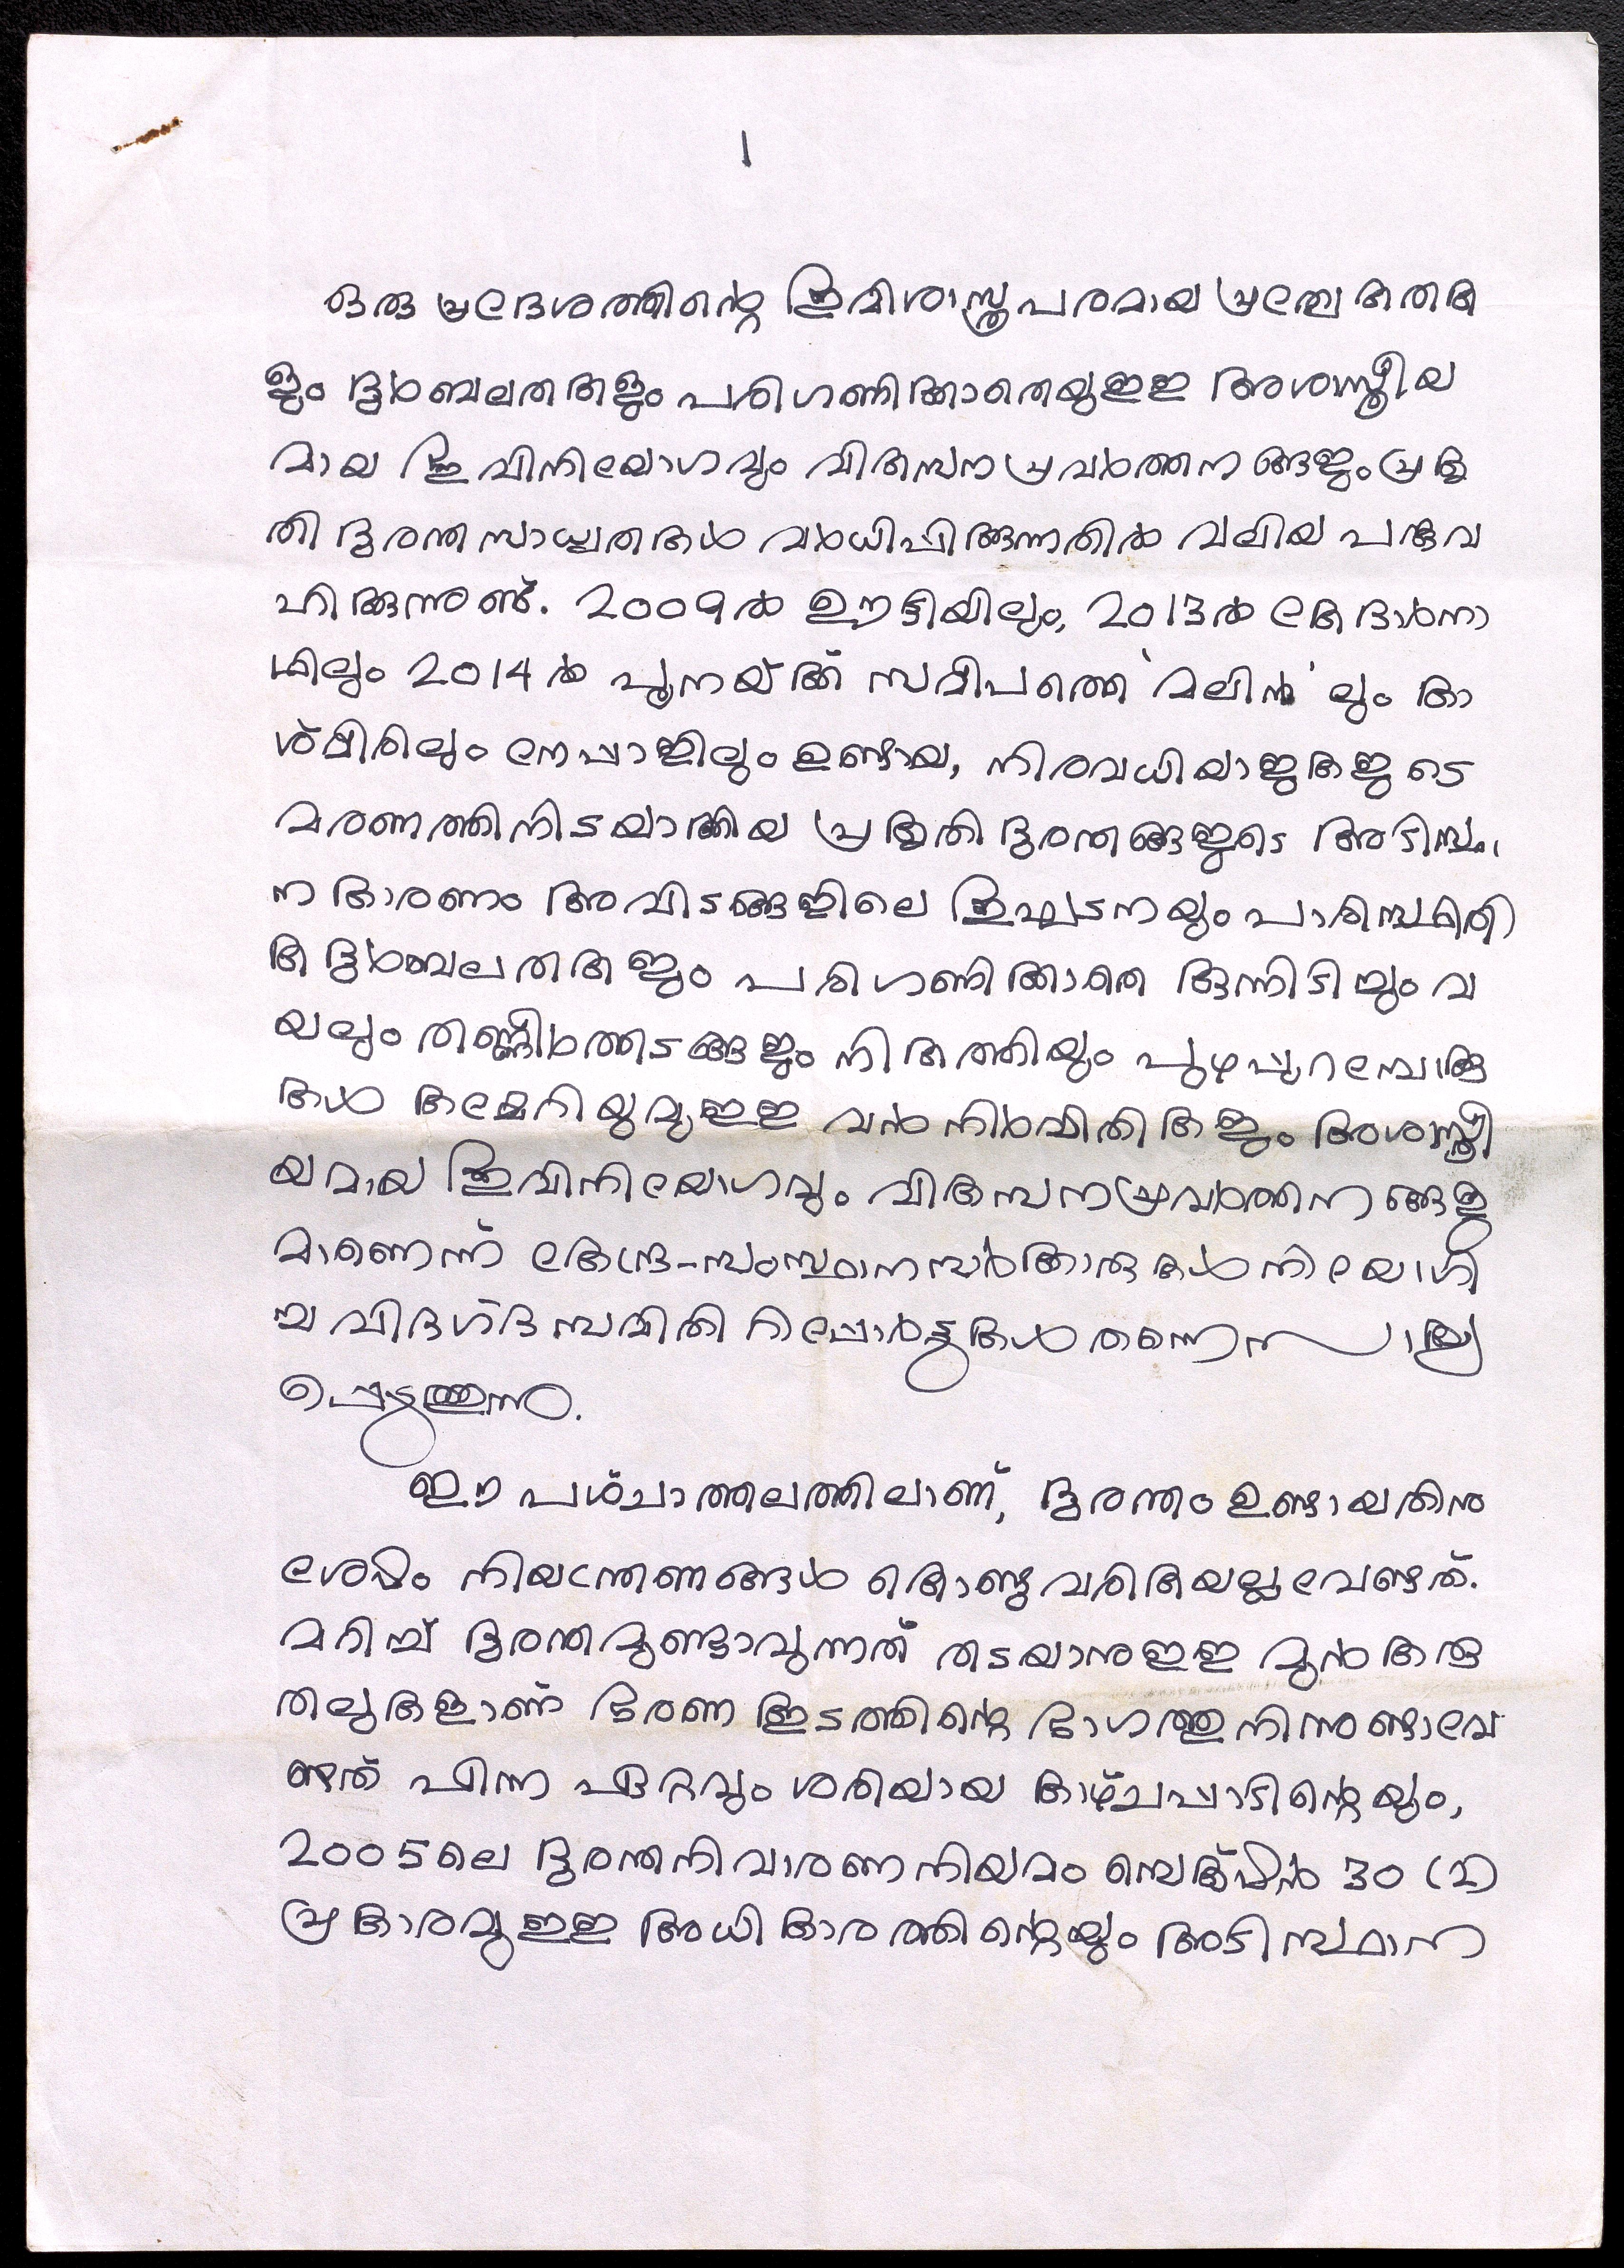 1
ഒരു പ്രദേശത്തിന്റെ ഭൂമിശാസ്ത്രപരമായ പ്രത്യേകതക
ളും ദുർബലതകളും പരിഗണിക്കാതെയുള്ള അശാസ്ത്രീയ
മായ ഭൂവിനിയോഗവും വികസനപ്രവർത്തനങ്ങളും പ്രകൃ
തി ദുരന്തസാധ്യതകൾ വർധിപ്പിക്കുന്നതിൽ വലിയ പങ്കുവ
ഹിക്കുന്നുണ്ട്. 2009ൽ ഊട്ടിയിലും, 2013ൽ കേദാർനാ
ഥിലും 2014ൽ പൂനയ്ക്ക് സമീപത്തെ 'മലിൻ' ലും കാ
ശ്മീരിലും നേപ്പാളിലും ഉണ്ടായ, നിരവധിയാളുകളുടെ
മരണത്തിനിടയാക്കിയ പ്രകൃതിദുരന്തങ്ങളുടെ അടിസ്ഥാ
ന കാരണം അവിടങ്ങളിലെ ഭൂഘടനയും പാരിസ്ഥിതി
ക ദുർബലതകളും പരിഗണിക്കാതെ കുന്നിടിച്ചും വ
യലും തണ്ണീർത്തടങ്ങളും നികത്തിയും പുഴപ്പുറമ്പോക്കു
കൾ കയ്യേറിയുമുള്ള വൻ നിർമിതികളും അശാസ്ത്രീ
യമായ ഭൂവിനിയോഗവും വികസനപ്രവർത്തനങ്ങളു
മാണെന്ന് കേന്ദ്ര-സംസ്ഥാനസർക്കാരുകൾ നിയോഗി
ച്ച വിദഗ്ദസമിതി റിപ്പോർട്ടുകൾ തന്നെ സാക്ഷ്യ
പ്പെടുത്തുന്നു.
ഈ പശ്ചാത്തലത്തിലാണ്, ദുരന്തം ഉണ്ടായതിനു
ശേഷം നിയന്ത്രണങ്ങൾ കൊണ്ടുവരികയല്ല വേണ്ടത്.
മറിച്ച് ദുരന്തമുണ്ടാവുന്നത് തടയാനുള്ള മുൻകരു
തലുകളാണ് ഭരണകൂടത്തിന്റെ ഭാഗത്തുനിന്നുണ്ടാവേ
ണ്ടത് എന്ന ഏറ്റവും ശരിയായ കാഴ്ചപ്പാടിന്റെയും,
2005ലെ ദുരന്തനിവാരണനിയമം സെക്ഷൻ 30 (2)
പ്രകാരമുള്ള അധികാരത്തിന്റെയും അടിസ്ഥാന